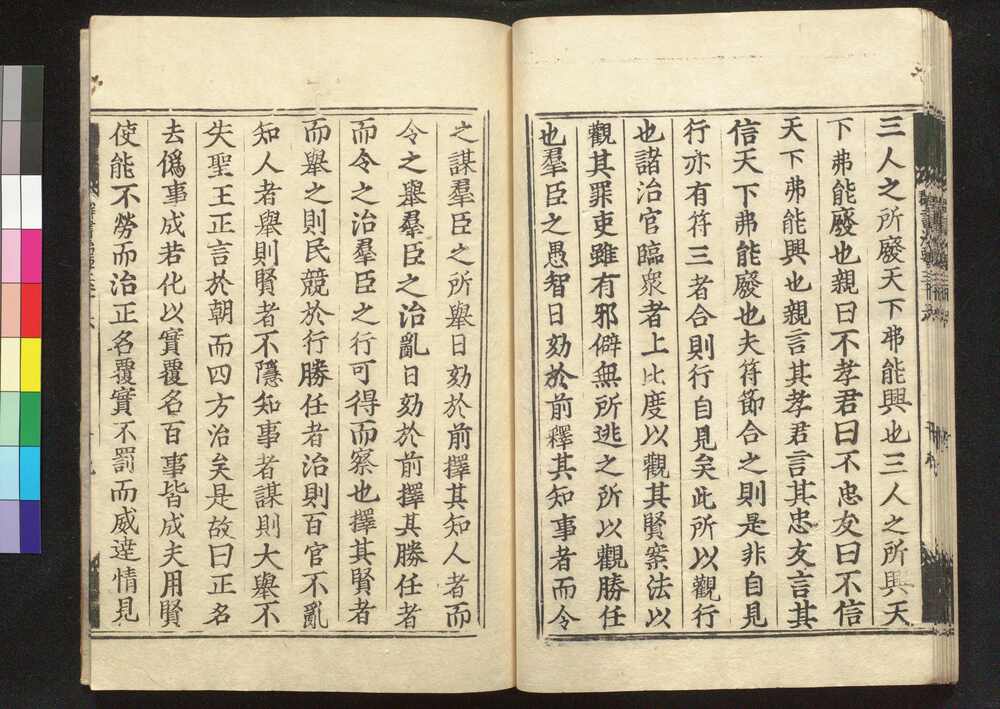 三人之所廢天下弗能興也三人之所興天
下弗能廢也親曰不孝君曰不忠友曰不信
天下弗能興也親言其孝君言其忠友言其
信天下弗能廢也夫符節合之則是非自見
行亦有符三者合則行自見矣此所以觀行
也諸治官臨衆者上比度以觀其賢案法以
觀其罪吏雖有邪僻無所逃之所以觀勝任
也羣臣之愚智日効於前擇其知事者而令
之謀羣臣之所舉日効於前擇其知人者而
令之舉羣臣之治亂日効於前擇其勝任者
而令之治羣臣之行可得而察也擇其賢者
而舉之則民競於行勝任者治則百官不亂
知人者舉則賢者不隱知事者謀則大舉不
失聖王正言於朝而四方治矣是故曰正名
去僞事成若化以實覆名百事皆成夫用賢
使能不勞而治正名覆實不罰而威達情見